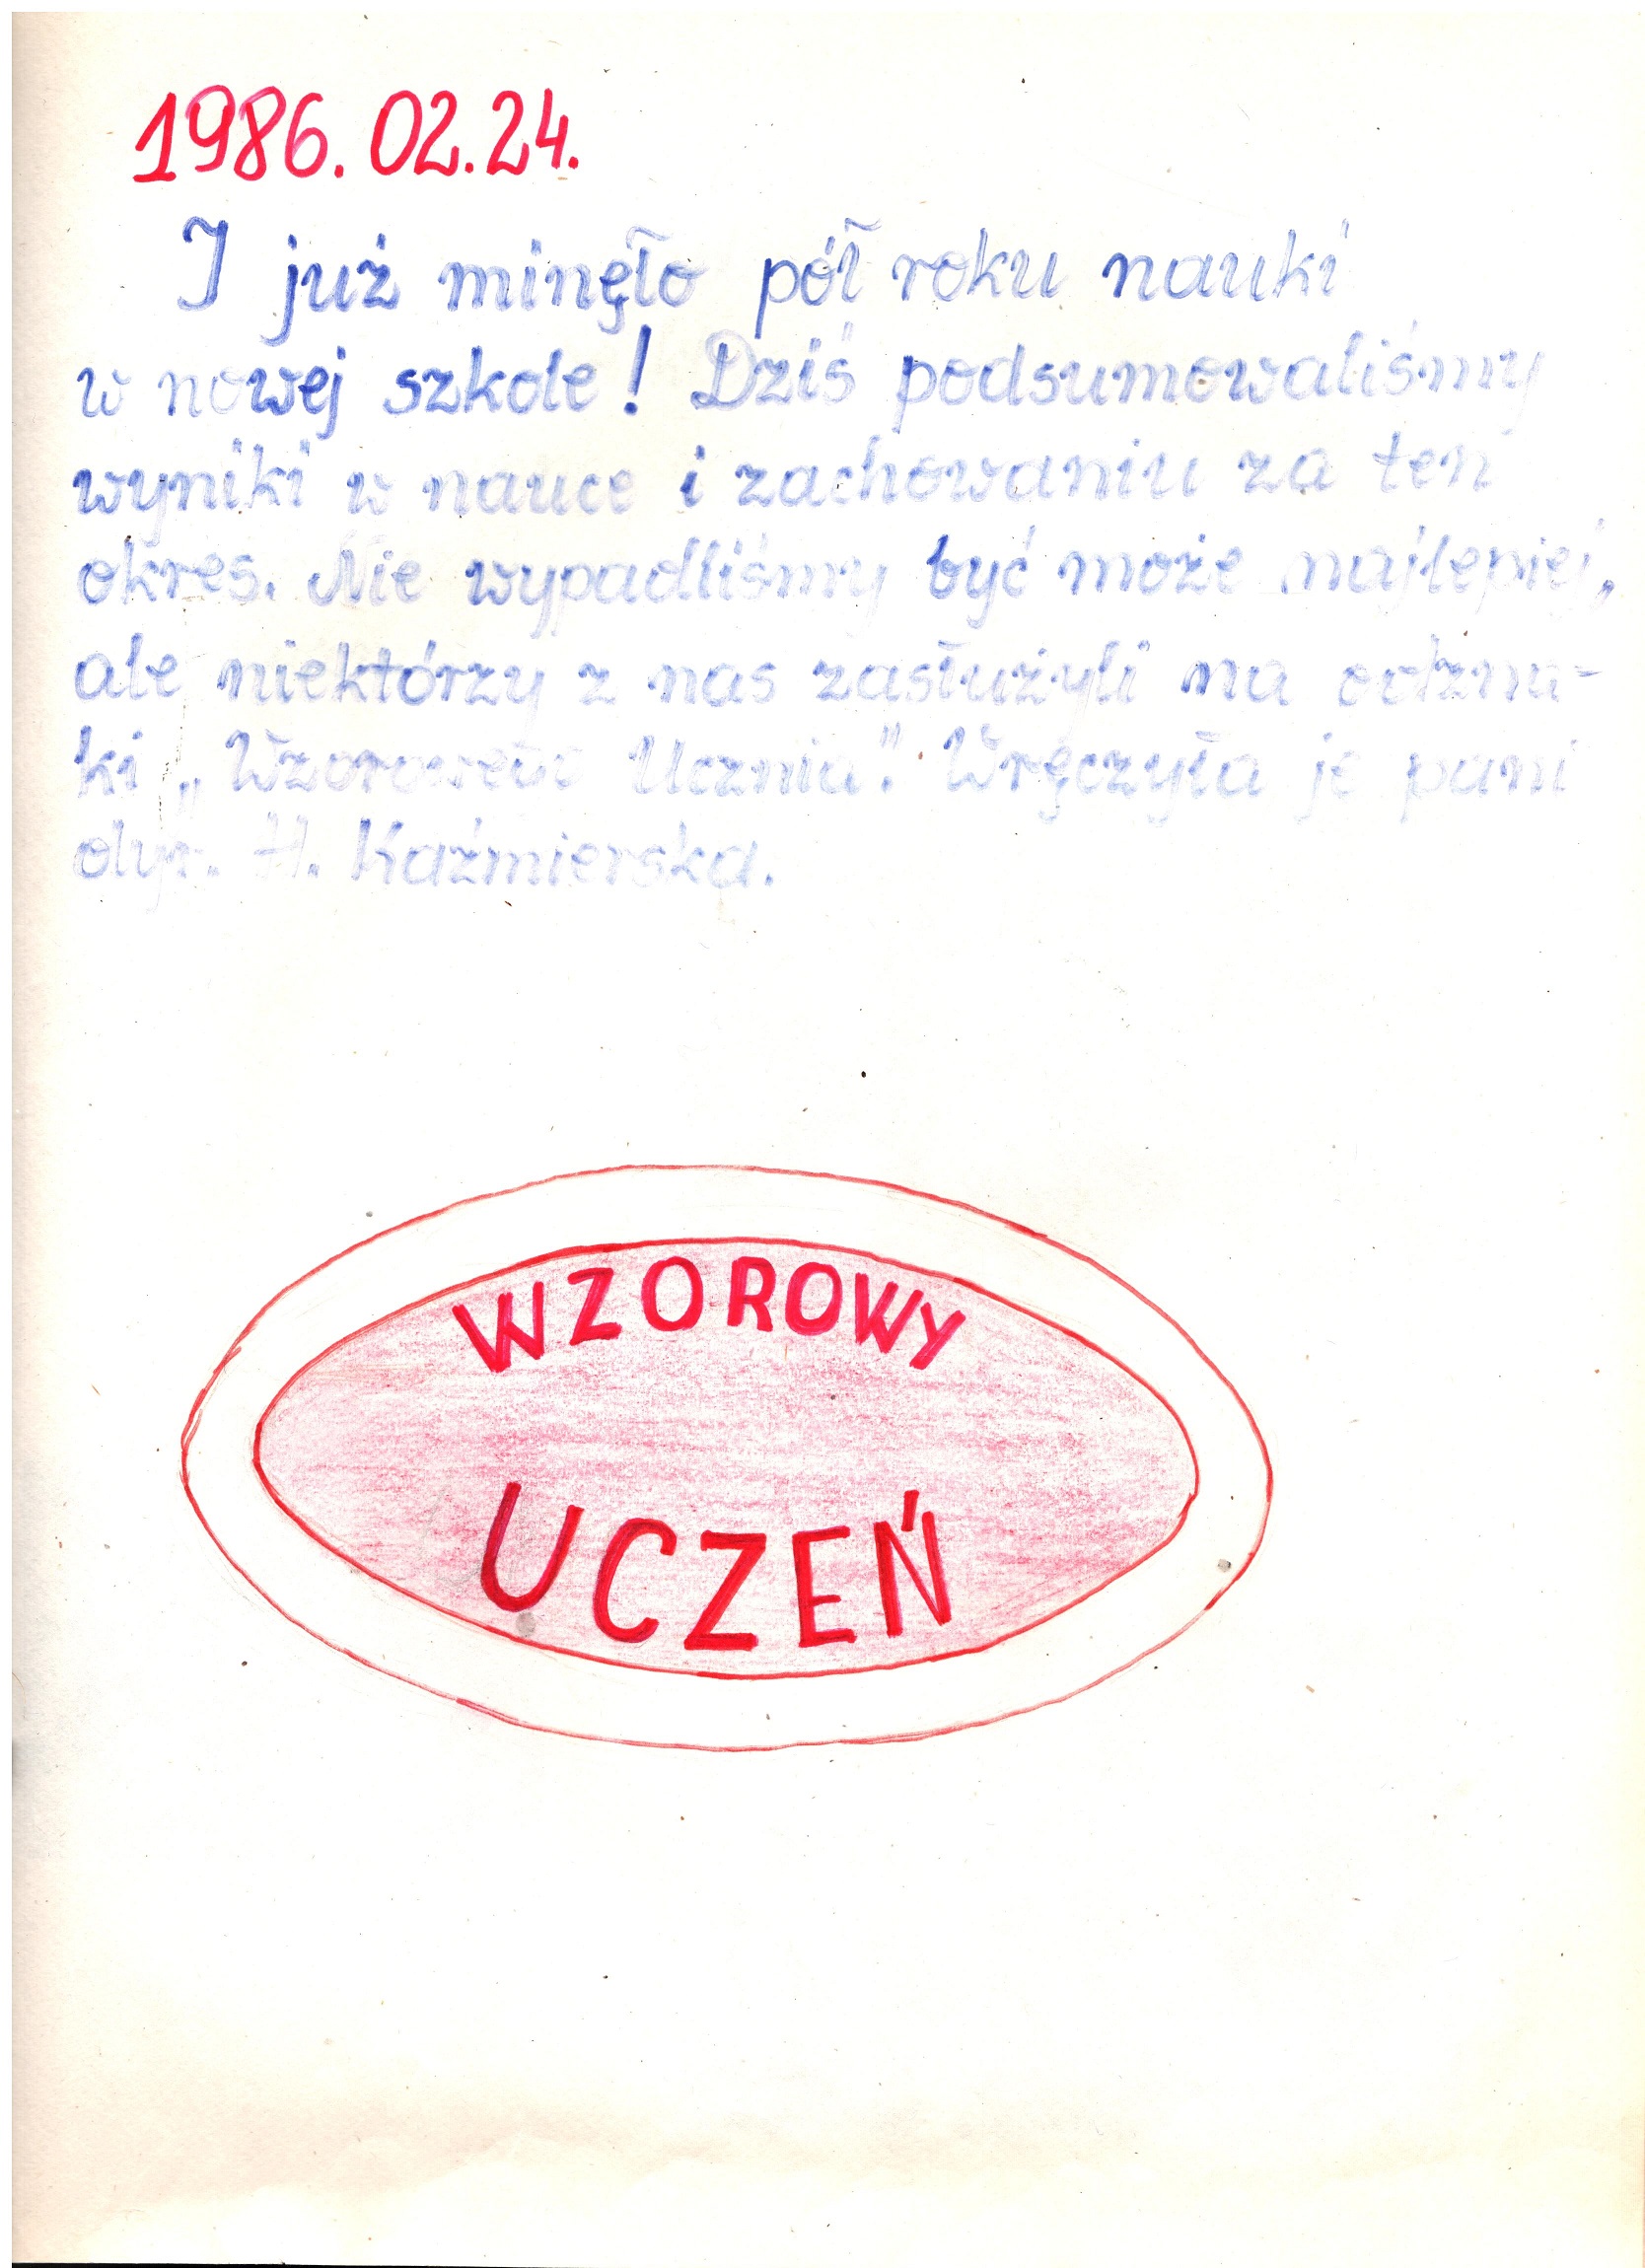 1986.02.24.
I już minęło pół roku nauki
w nowej szkole! Dziś podsumowaliśmy
wyniki w nauce i zachowaniu za ten
okres. Nie wypadliśmy być może najlepiej,
ale niektórzy z nas zasłużyli na odzna-
ki „Wzorowego Ucznia". Wręczyła je pani
dyr. H. Kaźmierska.
WZOROWY
UCZEŃ